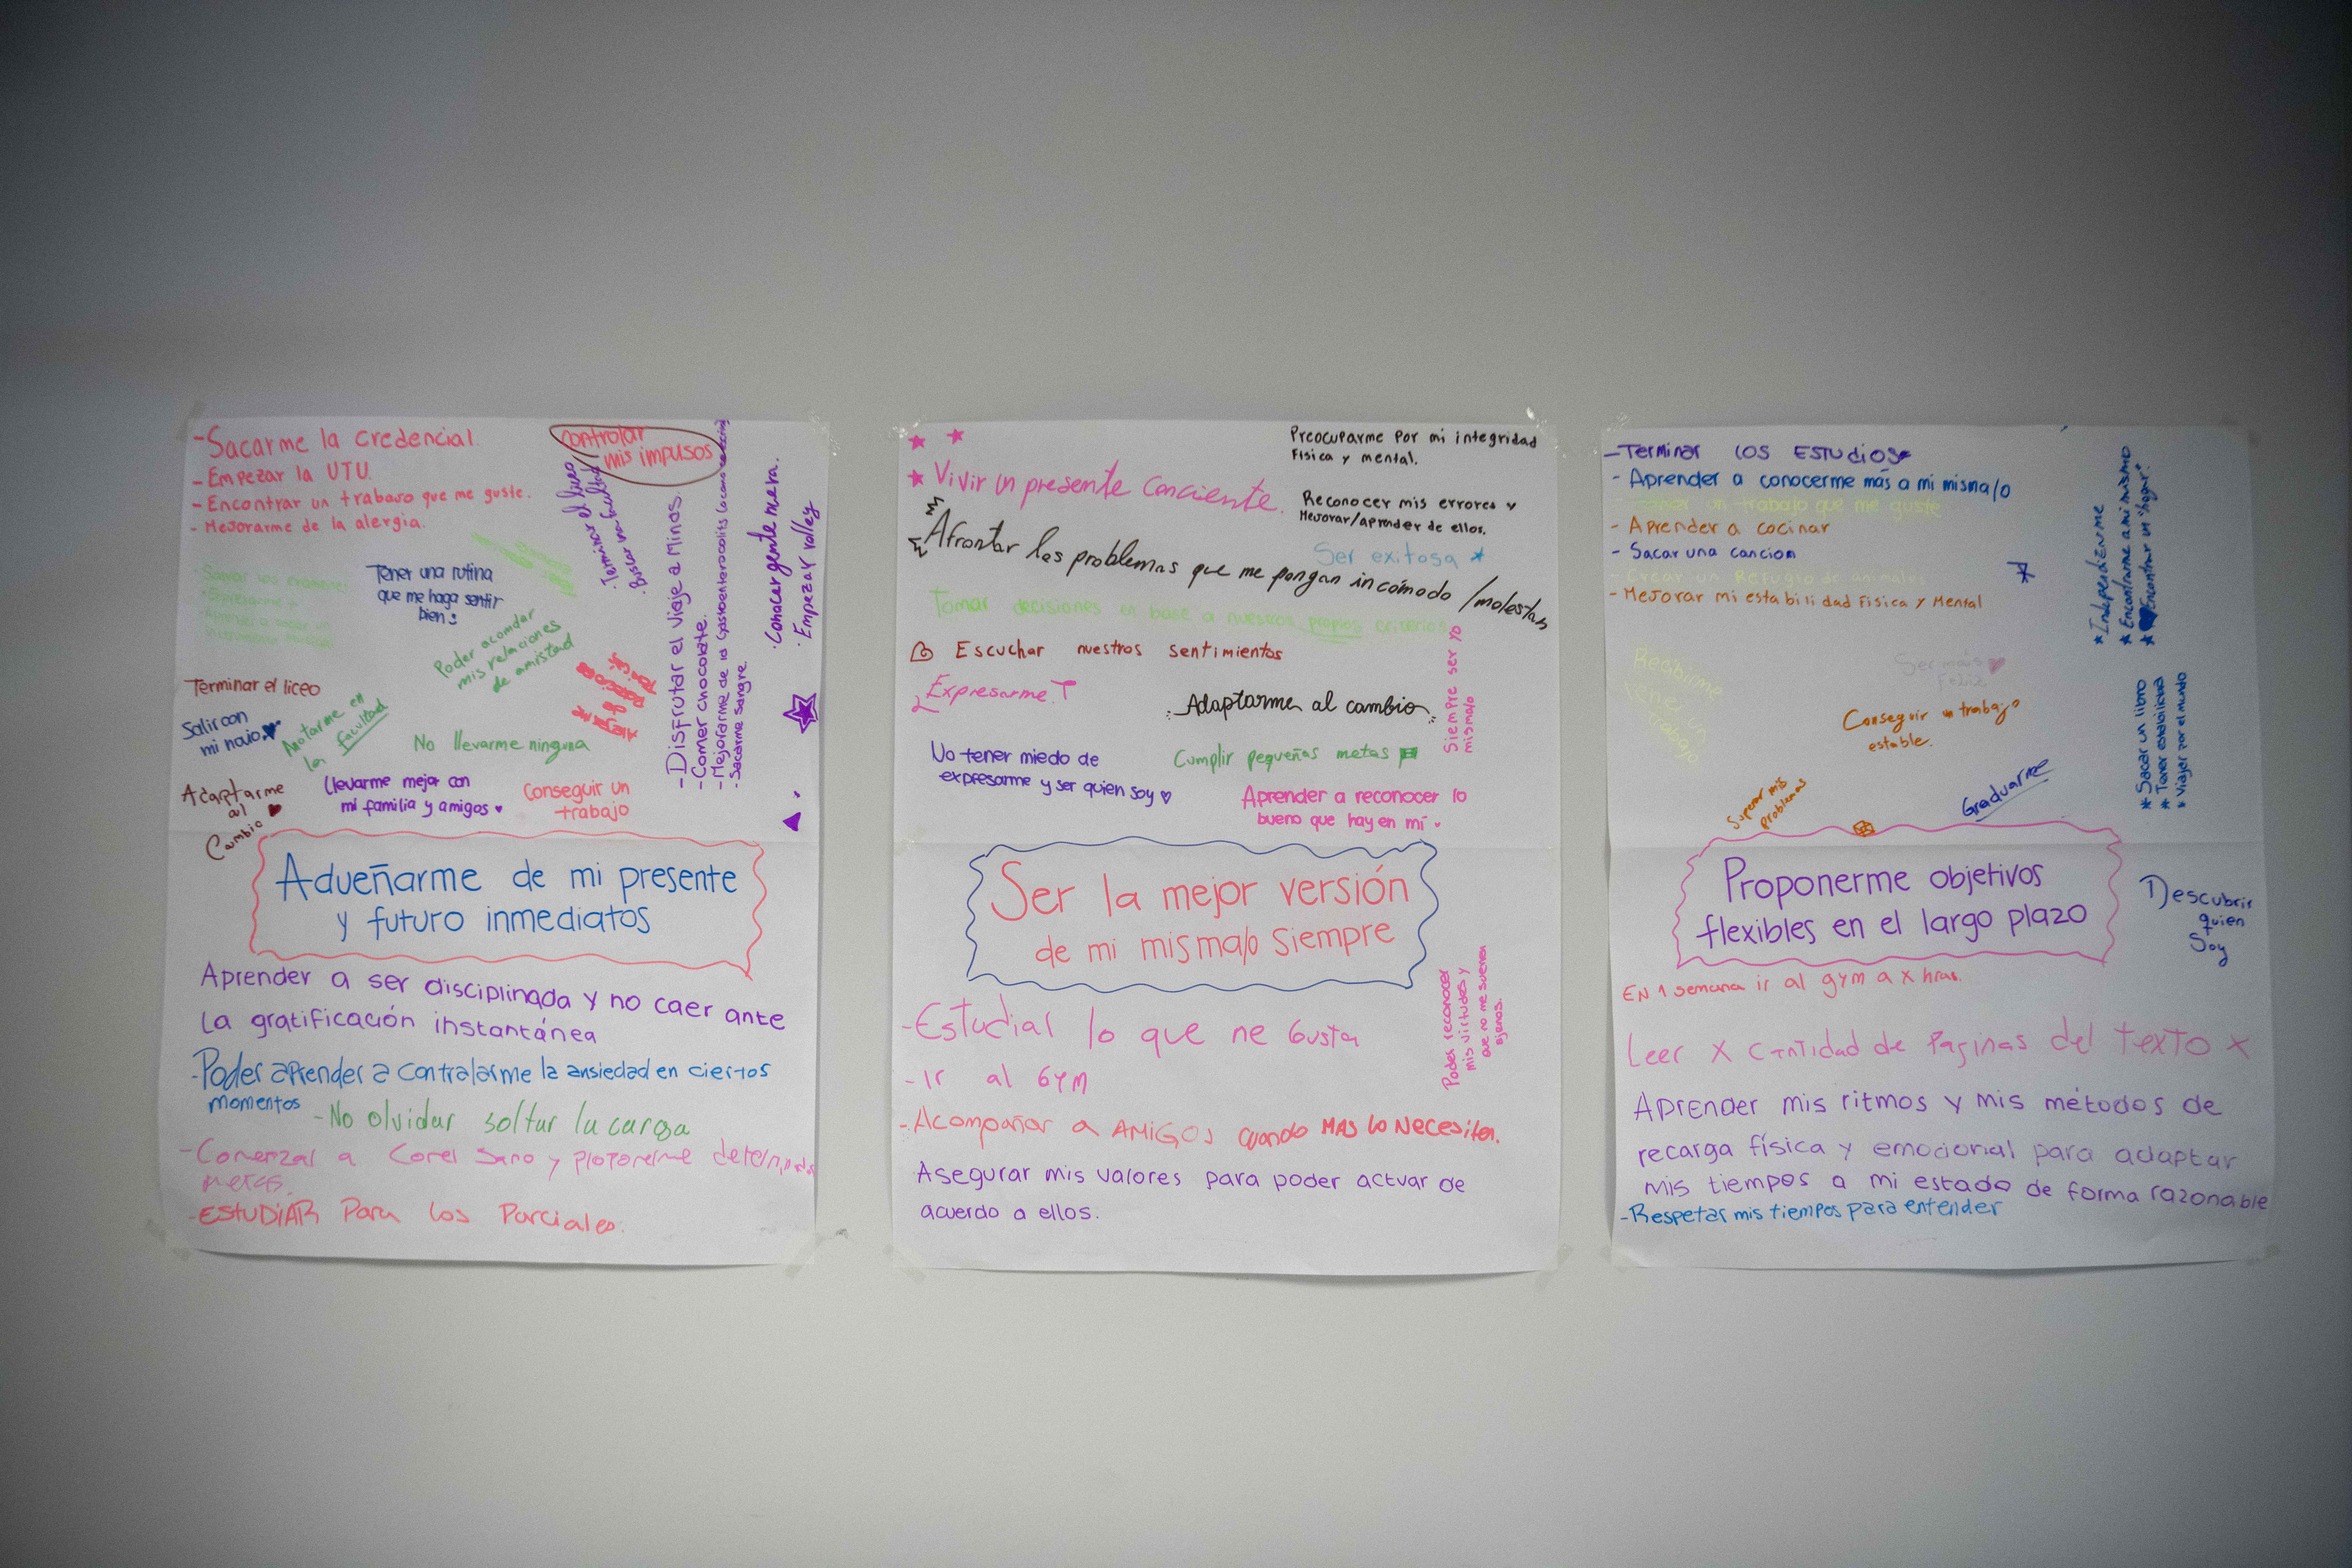 -Sacarme la credencial.
-Empezar la UTU.
-Encontrar un trabajo que me guste.
-Mejorarme de la alergia.
controlar
mis impulsos
Terminar el liceo
Buscar una facultad
-Disfrutar el viaje a Minas.
-Comer chocolate.
-Mejorarme de la Gastroenterocolitis
-Sacarme sangre
·Conocer gente nueva.
·Empezar volley
Tener una rutina
que me haga sentir
bien:
Poder acomodar
mis relaciones
de amistad
Terminar el liceo
Salir con
mi novio
Anotarme en
la facultad
No llevarme ninguna
Adaptarme
al
Cambio
llevarme mejor con
mi familia y amigos
Conseguir un
trabajo
Adueñarme de mi presente
y futuro inmediatos
Aprender a ser disciplinada y no caer ante
la gratificación instantánea
-Poder aprender a controlarme la ansiedad en ciertos
momentos
-No olvidar soltar la carga
-Comenzar a Comer Sano y proponerme determinadas
metas.
-ESTUDIAR Para los Parciales.
Preocuparme por mi integridad
Fisica y mental.
Vivir un presente conciente.
Reconocer mis errores y
Mejorar/aprender de ellos.
Afrontar los problemas que me pongan incómodo /molestan
Ser exitosa
Tomar decisiones en base a nuestros propios criterios
Escuchar nuestros sentimientos
Expresarme
Adaptarme al cambio
Siempre ser yo
mismalo
No tener miedo de
expresarme y ser quien soy
Cumplir pequeñas metas
Aprender a reconocer lo
bueno que hay en mí.
Ser la mejor versión
de mi misma/o siempre
-Estudiar lo que me Gusta
-Ir al GYM
-Acompañar a AMIGOS cuando MAS lo Necesiten.
Poder reconocer
mis virtudes y
que no me suenen
ajenos.
Asegurar mis valores para poder actuar de
acuerdo a ellos.
-Terminar los ESTUDIOS
-Aprender a conocerme más a mi misma/o
-Tener un trabajo que me guste
-Aprender a cocinar
-Sacar una cancion
-Crear un Refugio de animales
-Mejorar mi estabilidad Fisica y Mental
*Independizarme
*Encontrarme a mi mismo
*Encontrar un "hogar".
Recibirme
Ser más
Feliz
Conseguir un trabajo
estable.
*Sacar un libro
*Tener estabilidad
*Viajar por el mundo
Superar mis
problemas
Graduarme
Proponerme objetivos
flexibles en el largo plazo
Descubrir
quien
Soy
EN 1 semana ir al gym a x hras.
Leer X cantidad de Paginas del texto x
Aprender mis ritmos y mis métodos de
recarga física y emocional para adaptar
mis tiempos a mi estado de forma razonable
-Respetar mis tiempos para entender